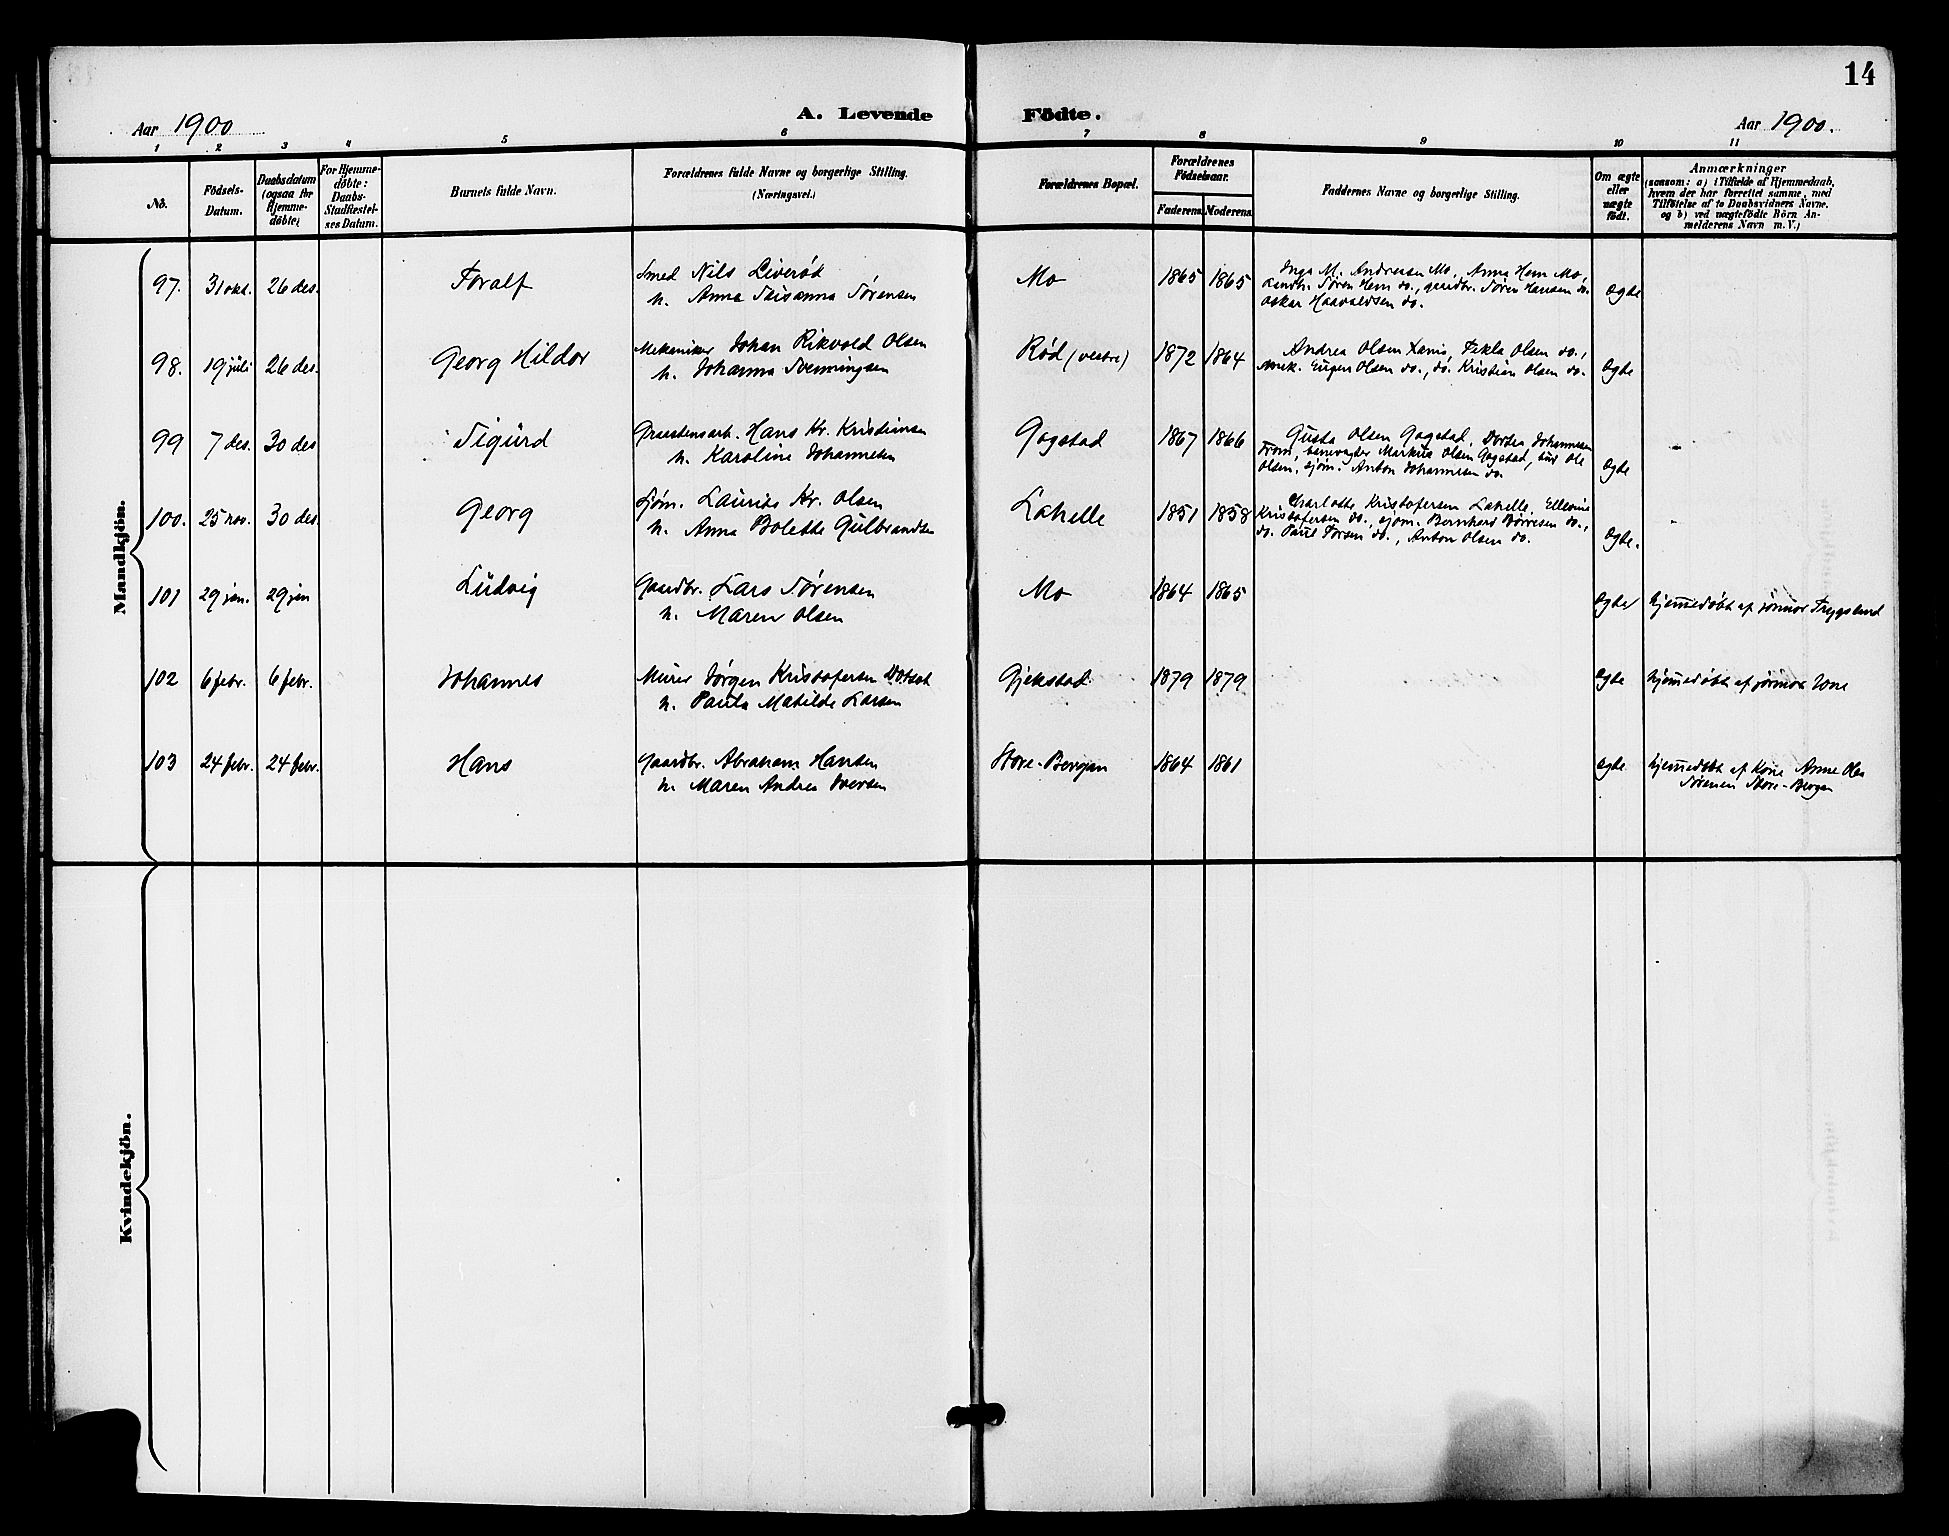 14
Aar 1900
A. Levende Födte.
Aar 1900.
1 2 3 4 5 6 7 8 9 10 11
No.
Födsels-
Datum.
Daabsdatum
(ogsaa för
Hjemme-
döbte)
For Hjemme-
döbte:
Daabs-
Stadfæstel-
ses Datum.
Barnets fulde Navn.
Forældrenes fulde Navne og borgerlige Stilling.
(Næringsvei.)
Forældrenes Bopæl.
Forældrenes
Födselsaar.
Faderens. Moderens.
Faddernes Navne og borgerlige Stilling.
Om ægte
eller
uægte
födt.
Anmærkninger
(saasom: a) i Tilfælde af Hjemmedaab,
hvem der har forrettet samme, med
Tilföielse af to Daabsvidners Navne.
og b) ved uægtefödte Börn An-
melderens Navn m. V.)
Mandkjön.
97. 31 okt. 26 des. Toralf
Smed Nils Liverød
h. Anna Susanna Sørensen
Mo 1865 1865
Inga M. Andresen Mo, Anna Hem Mo,
Landh. Søren Hem do., gaardbr. Søren Hansen do.
Oskar Haavaldsen do.
ægte
98. 19 juli 26 des. Georg Hildor
Mekaniker Johan Rikvold Olsen
h. Johanna Svenningsen
Rød (vestre) 1872 1864
Andrea Olsen, Tekla Olsen do.,
Mek. Eugen Olsen do., do. Kristian Olsen do.
ægte
99 7 des. 30 des Sigurd
Hans Kr. Kristiansen
h. Karoline Johannesen
Gogstad 1867 1866
Gusta Olsen Gogstad, Dortea Johannesen
Fram, banevogter Markus Olsen Gogstad, Ole
Olsen, sjøm. Anton Johannesen do.
ægte
100. 25 nov. 30 des. Georg
Sjøm. Laurits Kr. Olsen
h. Anna Bolette Gulbrandsen
Lahelle 1851 1858
Charlotte Kristofersen Lahelle, Ellevine
Kristofersen do., sjøm. Bernhard Børresen do.,
do. Paul Torsen do., Anton Olsen do.
ægte.
101 29 jan. 29 jan Ludvig
Gaardbr. Lars Sørensen
h. Maren Olsen
Mo 1864 1865
ægte hjemmedøbt af jormor Trygslund
102 6 febr. 6 febr. Johannes
Murer Jørgen Kristofersen
h. Paula Matilde Larsen
Gjekstad 1879 1879
ægte hjemmedøbt af jormor
103 24 febr. 24 febr. Hans
Gaardbr. Abraham Hansen
h. Maren Andrea Iversen
Store-Bergan 1864 1861
ægte hjemmedøbt af Kone Anne Olea
Sørensen Store-Bergan
Kvindekjön.